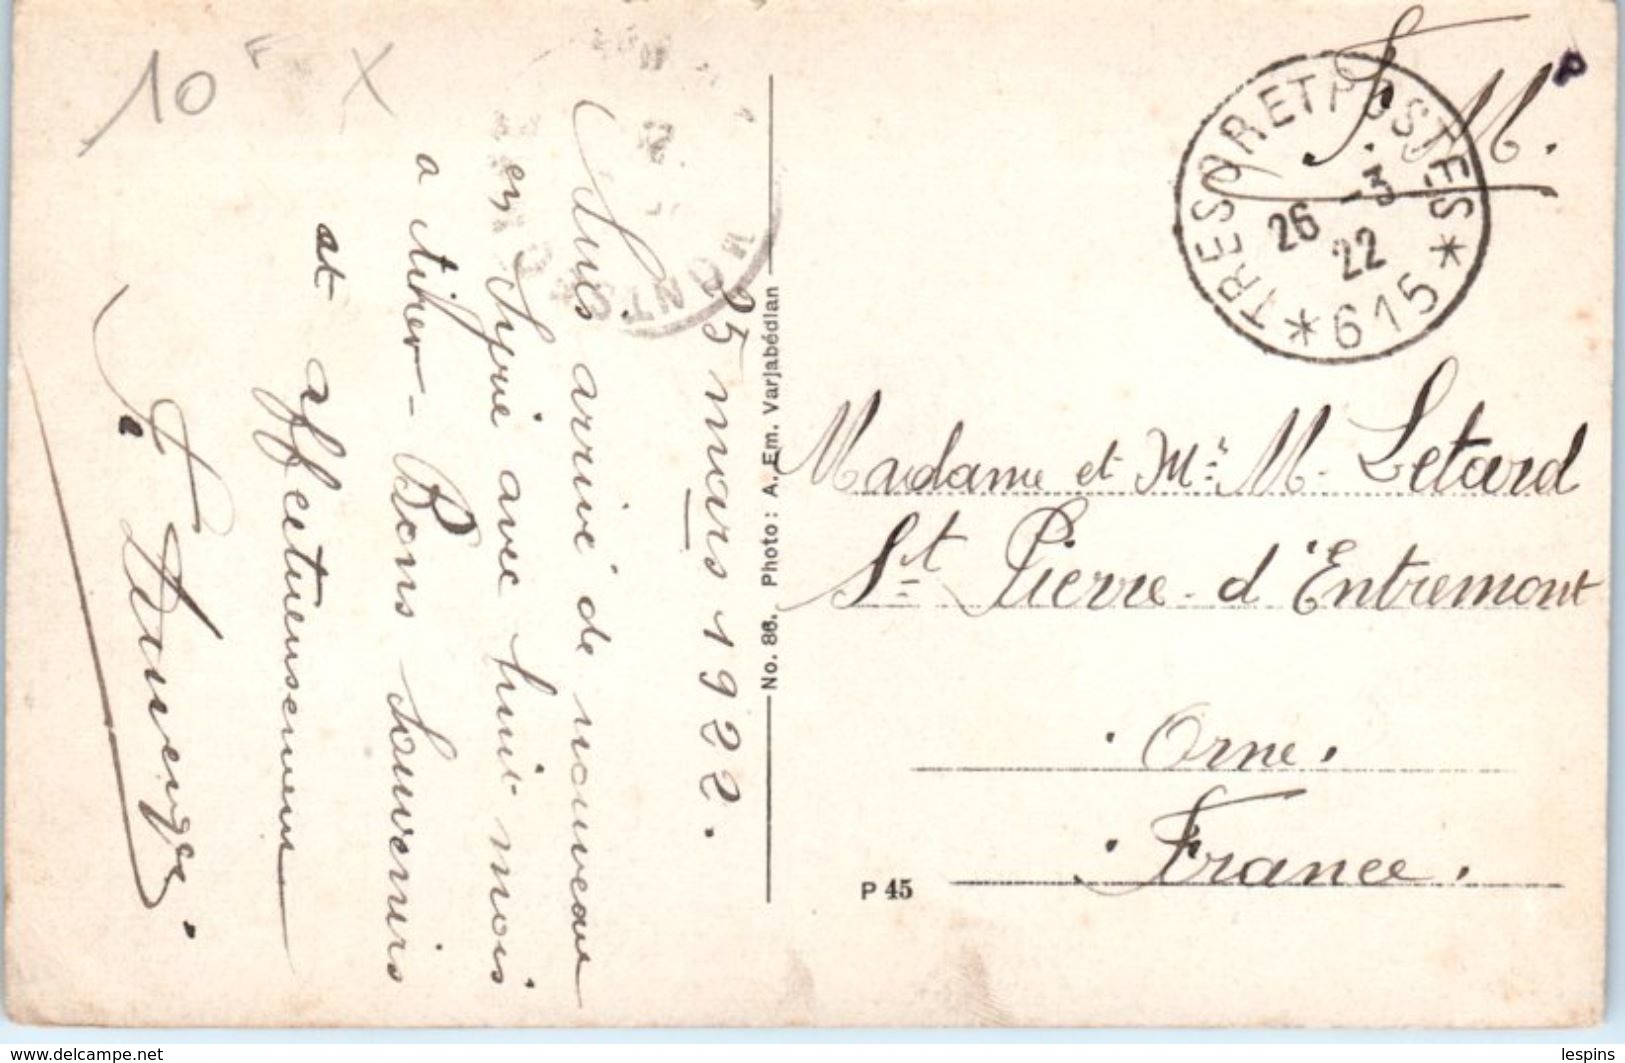 10 F X
25 mars 1922.
Suis arrivé de nouveau
en Syrie avec huit mois
a tirer - Bons Souvenirs
at affectueusement
No. 86. Photo: A. Em. Varjabédian
F. M.
P
TRESOR ET POSTES
26 -3
22
* 615 *
Madame et Mr. M. Letard
St Pierre - d'Entremont
. Orne.
. France.
P 45
www.delcampe.net
lespins